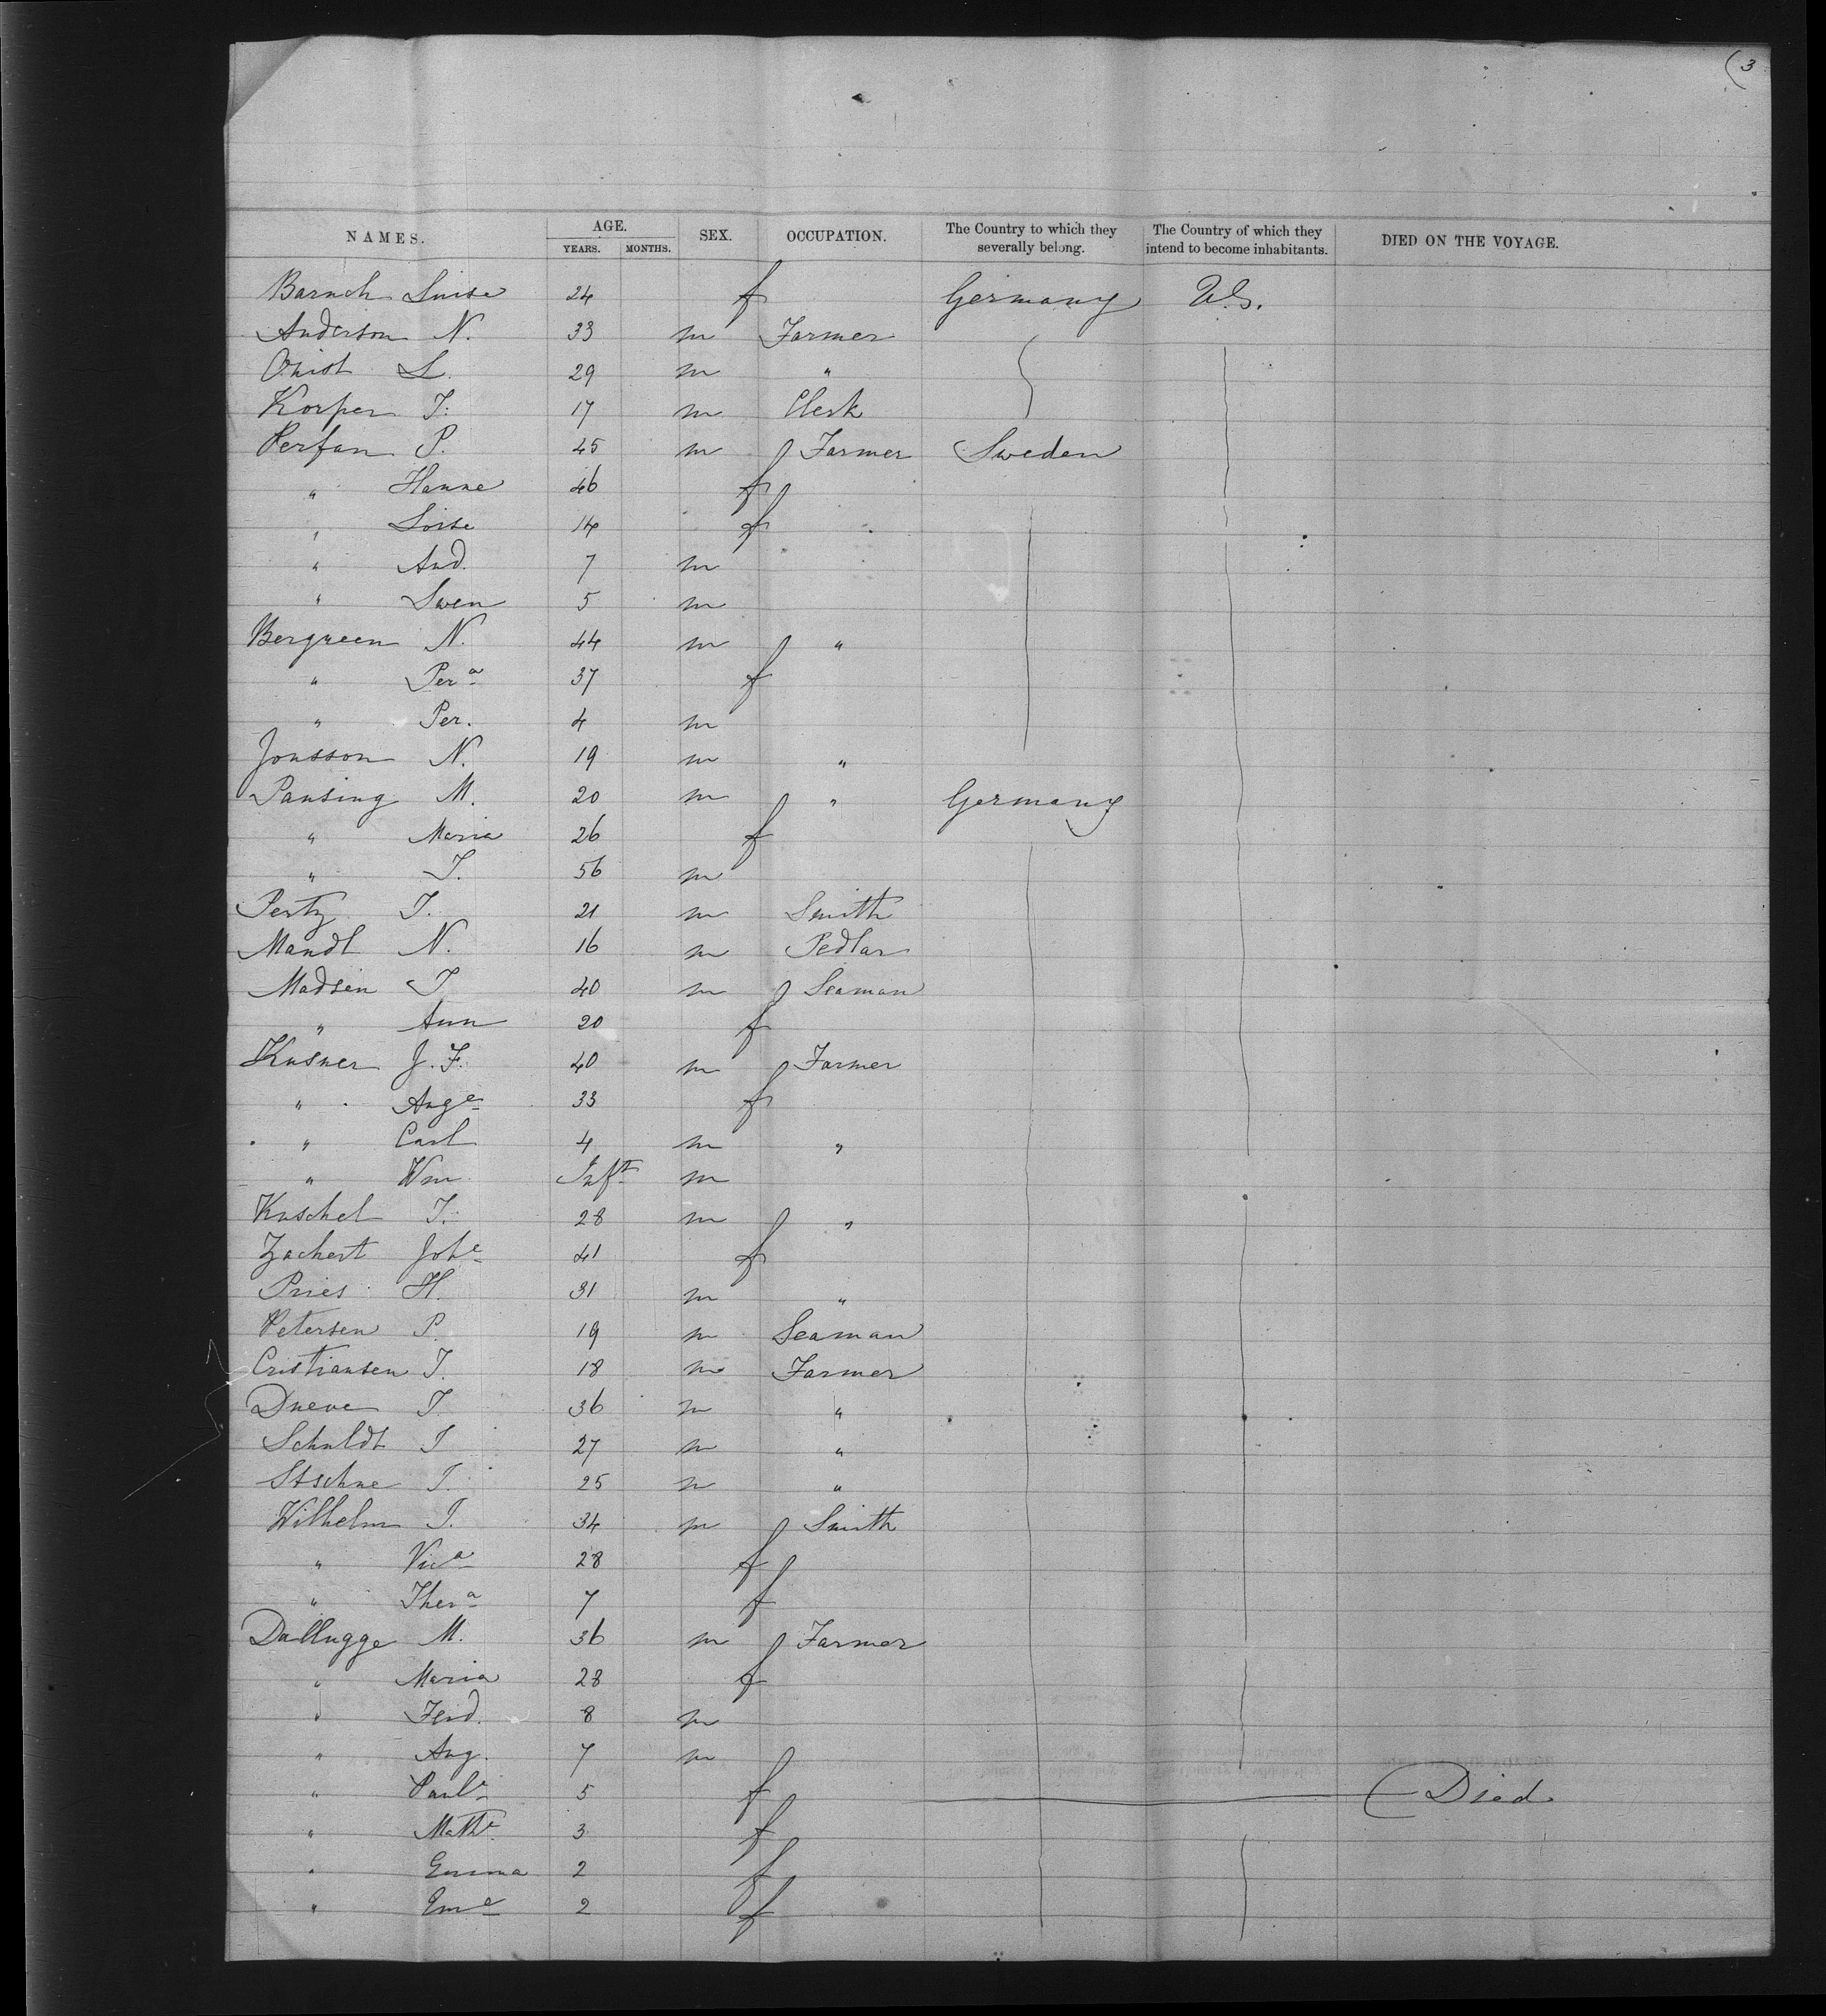 (3
NAMES. AGE. SEX. OCCUPATION. The Country to which they severally belong. The Country of which they intend to become inhabitants. DIED ON THE VOYAGE.
YEARS. MONTHS.
Baruch Luise 24 f Germany U.S.
Anderson N. 33 m Farmer
L. 29 m "
Korper I. 17 m Clerk
Perfan P. 45 m Farmer Sweden
" Hanne 46 f
" Loise 14 f
" And. 7 m
" Swen 5 m
Bergreen N. 44 m "
" Per a 37 f
" Per. 4 m
Jonsson N. 19 m "
Pansing M. 20 m " Germany
" Maria 26 f
" I. 56 m
Pertz I. 21 m Smith
Mandl N. 16 m Pedlar
Madsen I 40 m Seaman
" Ann 20 f
Kusner J. F. 40 m Farmer
" Aug e 33 f
" Carl 4 m "
" Wm Inft m
Kuschel I. 28 m "
Zachert Joh e 41 f
Pries H. 31 m "
Petersen P. 19 m Seaman
Cristiansen I. 18 m Farmer
Dueve I 36 m "
Schuldt I 27 m "
Stschne I. 25 m "
Wilhelm I. 34 m Smith
" Vic a 28 f
" Ther a 7 f
Dallugge M. 36 m Farmer
" Maria 28 f
" Ferd. 8 m
" Aug. 7 m
" Paul e 5 f Died
" Math e 3 f
" Emma 2 f
" Em e 2 f